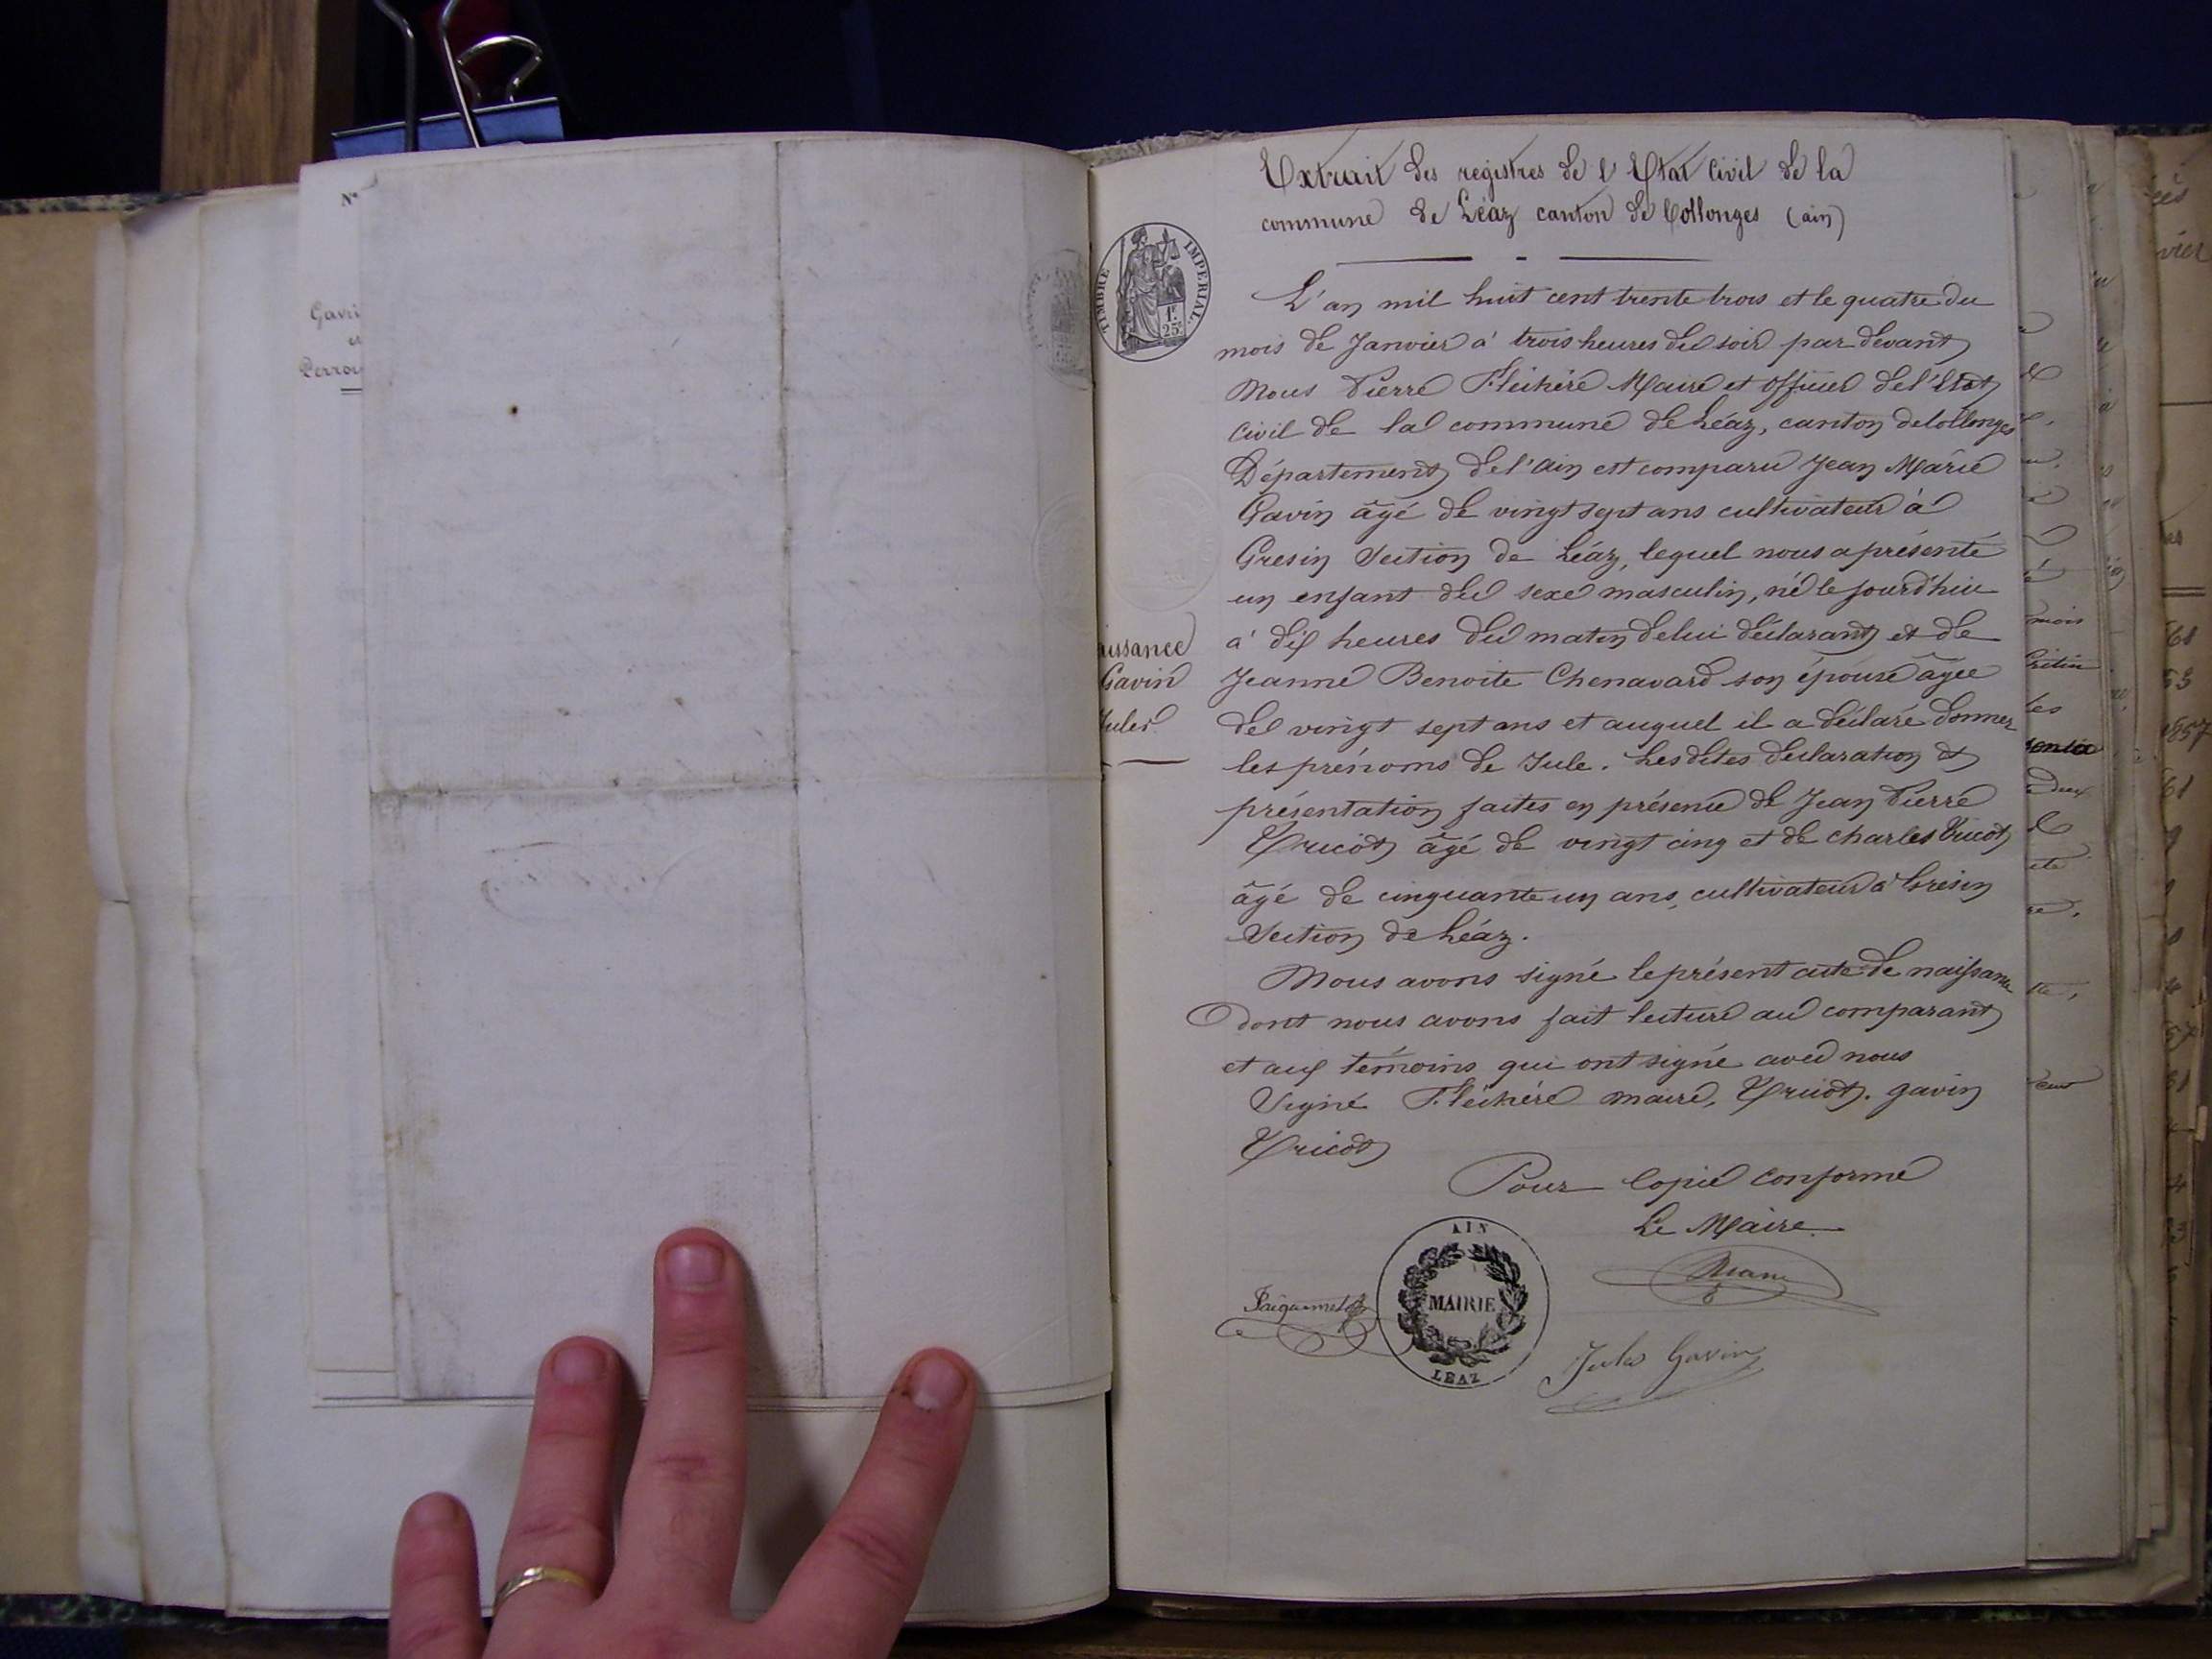 Nº
Gavi
et
Perro
Extrait des registres de l'Etat Civil de la
commune de Léaz canton de Collonges (ain)
TIMBRE IMPERIAL
1F.
25C.
L'an mil huit cent trente trois et le quatre du
mois de Janvier à trois heures du soir par devant
Nous Pierre Fléchère Maire et officier de l'Etat
Civil de la commune de Léaz, canton de Collonges
Département de l'Ain est comparu Jean Marie
Gavin âgé de vingt sept ans cultivateur à
Gresin Section de Léaz, lequel nous a présenté
un enfant du sexe masculin, né le jourd'hui
à dix heures du matin de lui déclarant et de
Jeanne Benoite Chenavard son épouse âgée
de vingt sept ans et auquel il a déclaré donner
les prénoms de Jule. Les dites déclaration et
présentation faites en présence de Jean Pierre
Tricot âgé de vingt cinq et de charles Tricot
âgé de cinquante un ans, cultivateur à Gresin
Section de Léaz.
Nous avons signé le présent acte de naissance
dont nous avons fait lecture au comparant
et aux témoins qui ont signé avec nous
Signé Fléchère maire, Tricot. gavin
Tricot
issance
Gavin
Jules
Pour Copie Conforme
Le Maire
AIN
MAIRIE
LÉAZ
Jules Gavin
mois
les